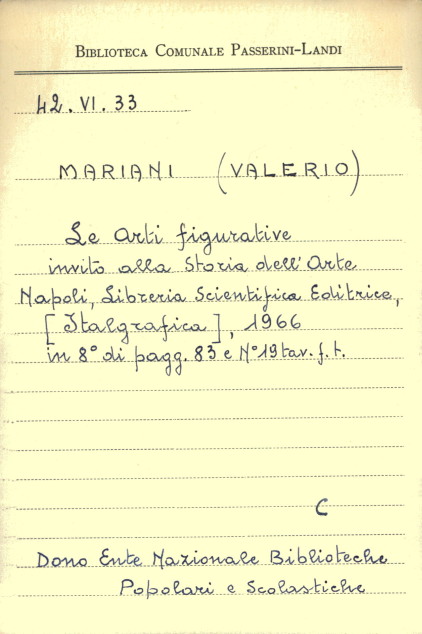 BIBLIOTECA COMUNALE PASSERINI-LANDI
42.VI.33
MARIANI (VALERIO)
Le Arti figurative
invito alla Storia dell'Arte
Napoli, Libreria Scientifica Editrice,
[Italgrafica], 1966
in 8° di pagg. 83 e N° 19 tav. f. t.
C
Dono Ente Nazionale Biblioteche
Popolari e Scolastiche